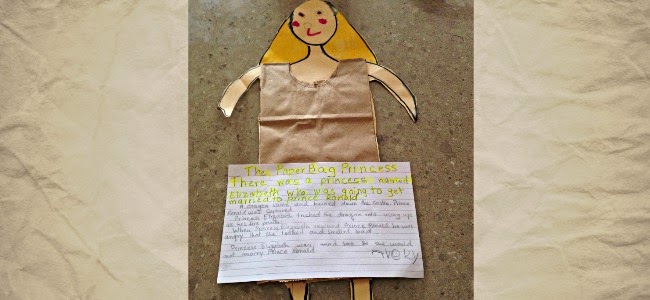 The PaperBag Princess
There was a princess named
Elizabeth who was going to get
married to prince Ronald
A dragon came and burned down the castle. Prince
Ronald was captured
Princess Elizabeth tricked the dragon into using up
all his fire power
When Princess Elizabeth rescued Prince Ronald he was
angry that she looked and
Princess Elizabeth was and she would
not marry Prince Ronald